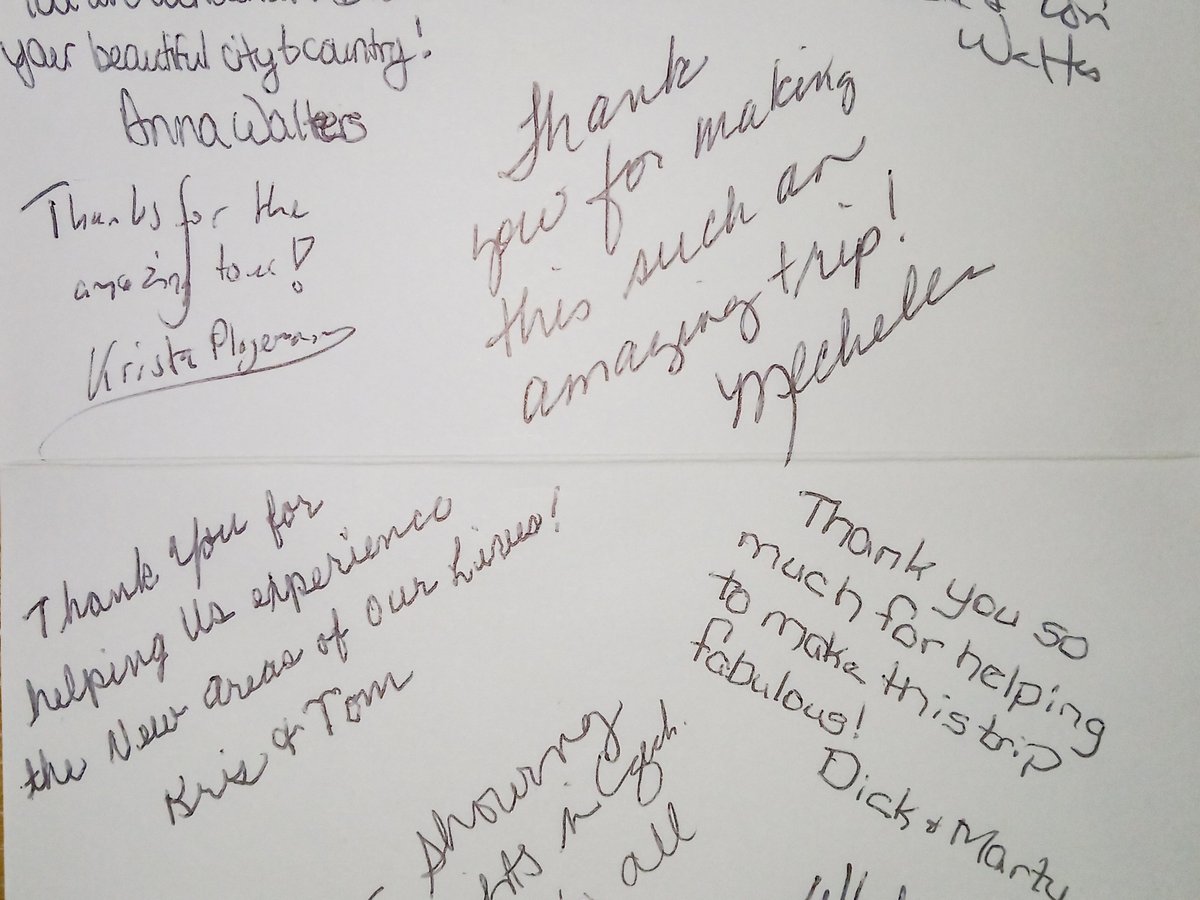 your beautiful city & country!
Anna Walters
Watts
Thanks for the
amazing tour!
Krista
Thank
you for making
this such an
amazing trip!
Thank You for
helping Us experience
the New areas of our Lives!
Kris & Tom
Thank you so
much for helping
to make this trip
fabulous!
Dick & Marty
showing
in Czech
all